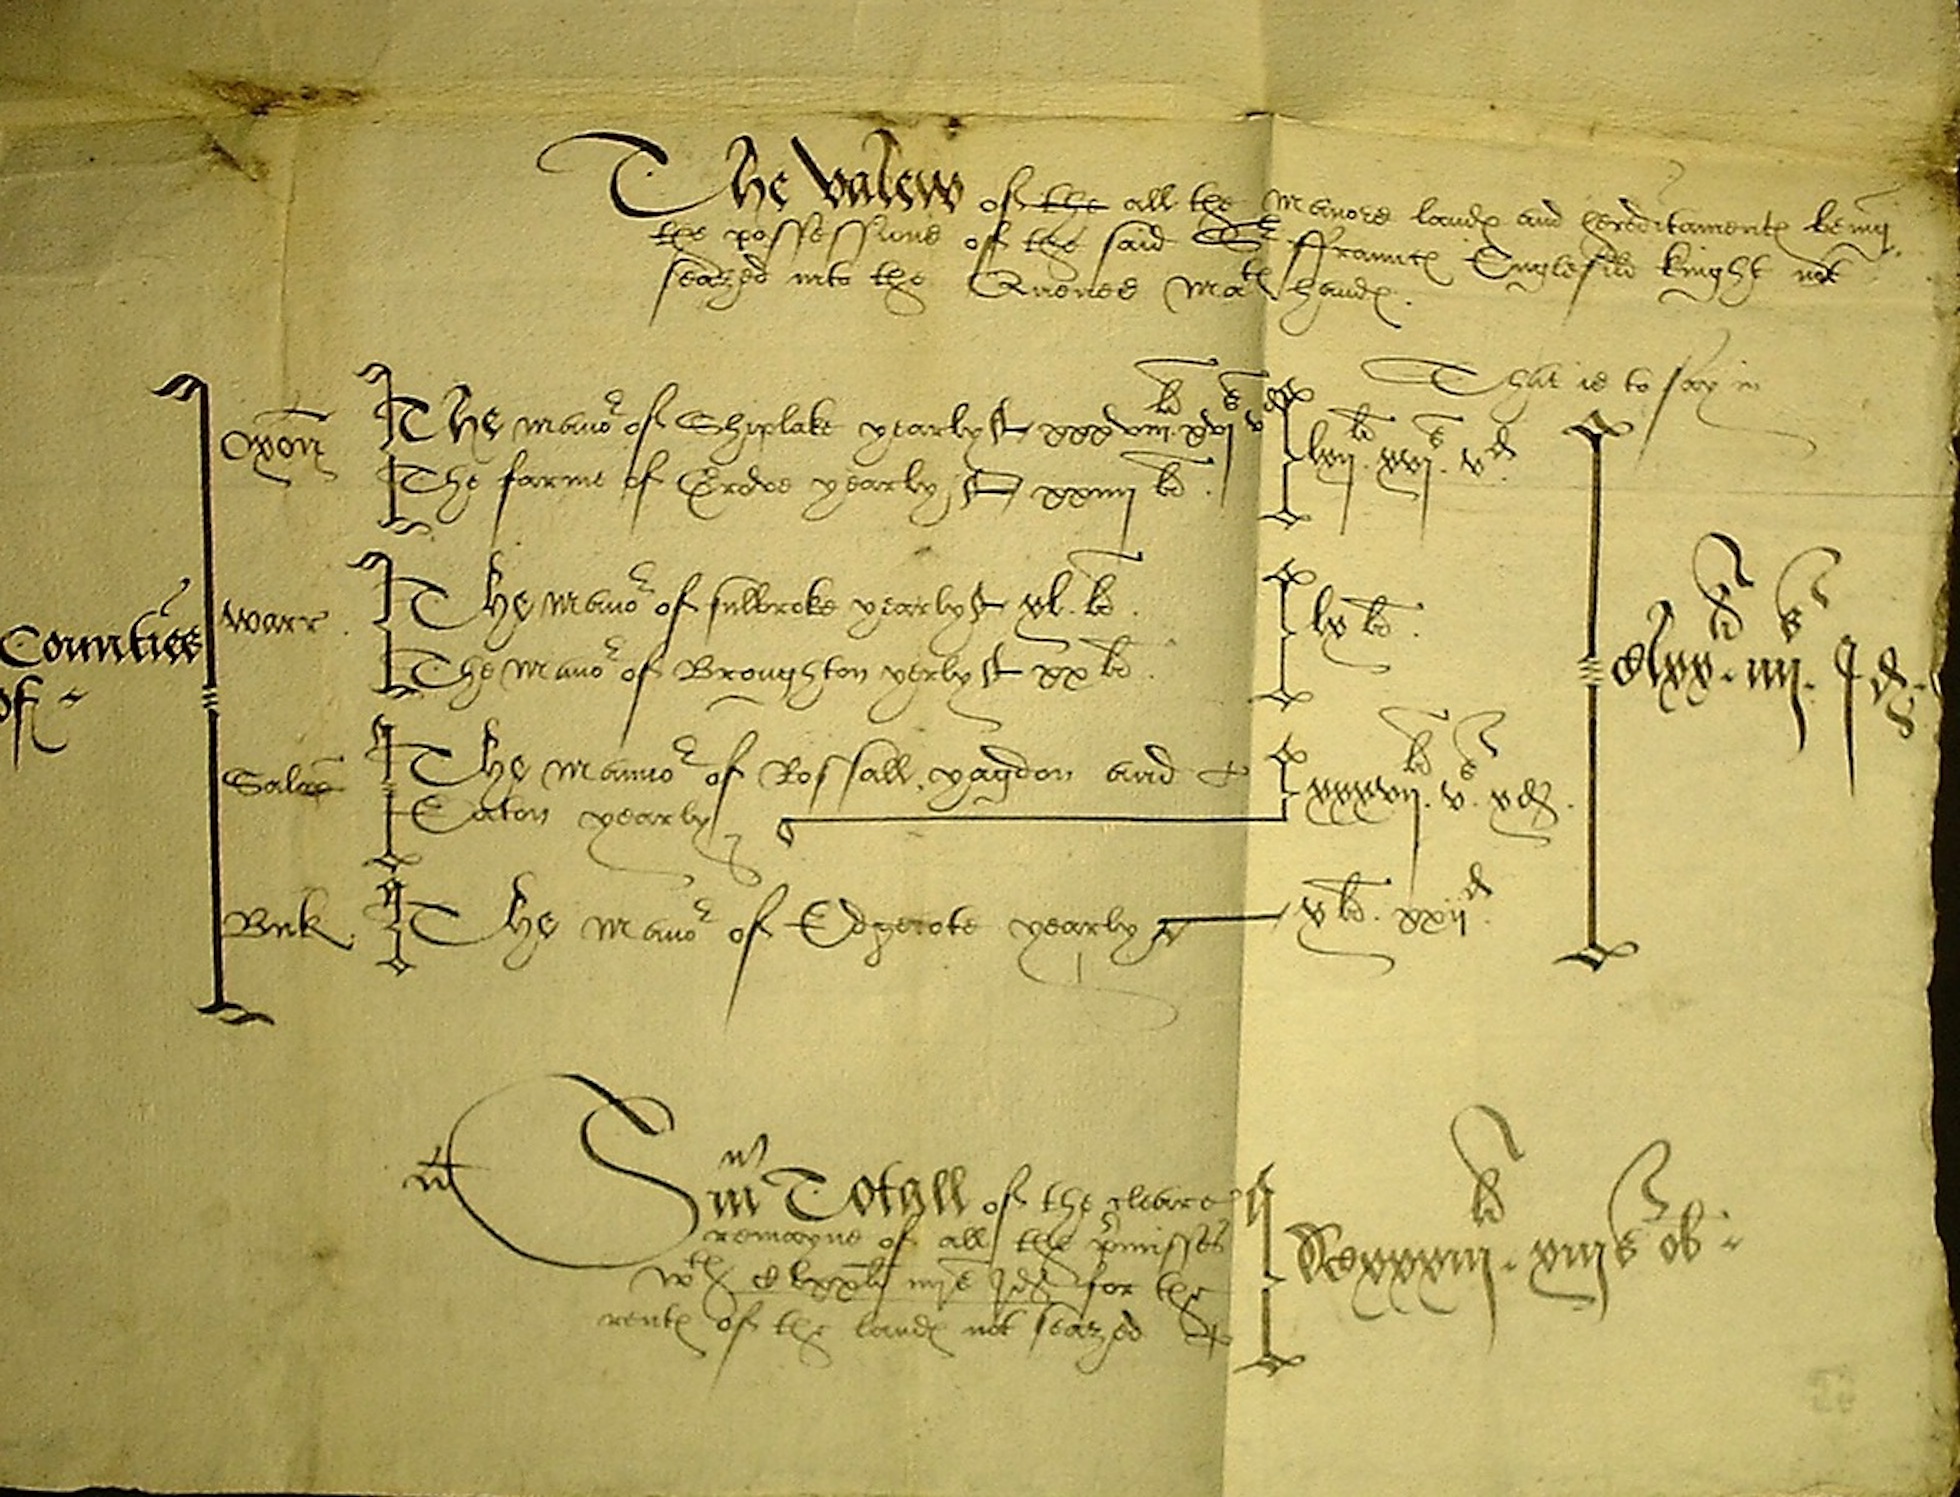 The valew of the all the Manors landes and hereditamentes being
the possessions of the said Sr ffrauncs Englefild knight not
seazed into the Quenes Matis handes.
That is to say in
Counties
of
Oxon
The Mano^r of Shiplake yearly xxxviij^li. xvj^s v^d
The farme of yearly xxiiij^li.
lxij^li. xvj^s. v^d
Warr.
The Mano^r of fulbroke yearly xl.^li.
The Mano^r of Broughton yerly xx^li.
lx^li.
Salop
The Manno^r of Rossall, yagdon and
Eaton yearly
xxxvij^li. v^s. x^d.
Buk.
The Mano^r of Edgcote yearly
x^li. xxij^d.
clxx^li. iiij^s. j^d.
Sm^a Totall of the cleare
remayne of all the p^rmisses
w^th clxx^li iiij^s j^d for the
rentes of the landes not seazed
xiiij^s ob